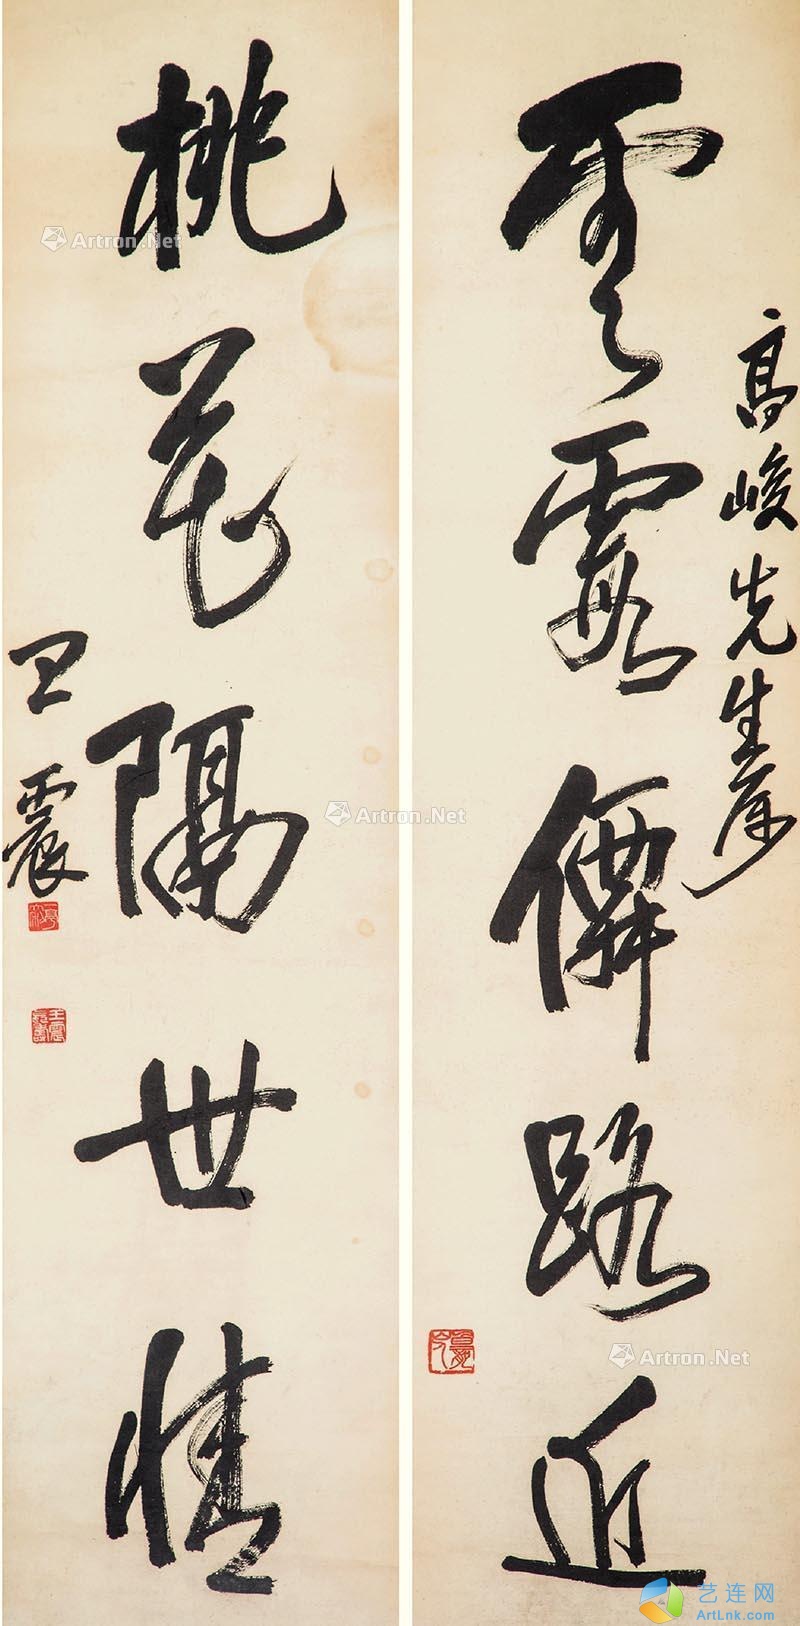 高峻先生属
雲霞僊路近
桃花隔世情
王震
王震長壽
Artron.Net
Artron.Net
Artron.Net
艺连网
ArtLnk.com